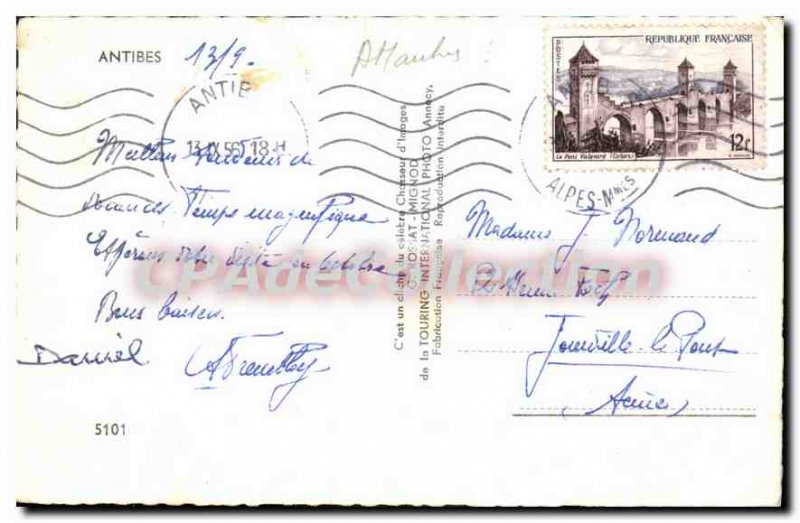 ANTIBES 13/9
ANTIB
13-IX 56 18H
Meilleurs souvenirs de
vacances, Temps magnifique
Espérons votre visite en octobre
Bons baisers
Daniel
5101
C'est un cliché du célèbre Chasseur d'Images
G. ROSSAT-MIGNOD
de la TOURING INTERNATIONAL PHOTO Annecy,
Fabrication Française Reproduction Interdite
REPUBLIQUE FRANÇAISE
POSTES
Le Pont Valentré (Cahors)
12F
ALPES-Mmes
Madame J Normand
Avenue Foch
Joinville le Pont
Seine
CPAdeCollection